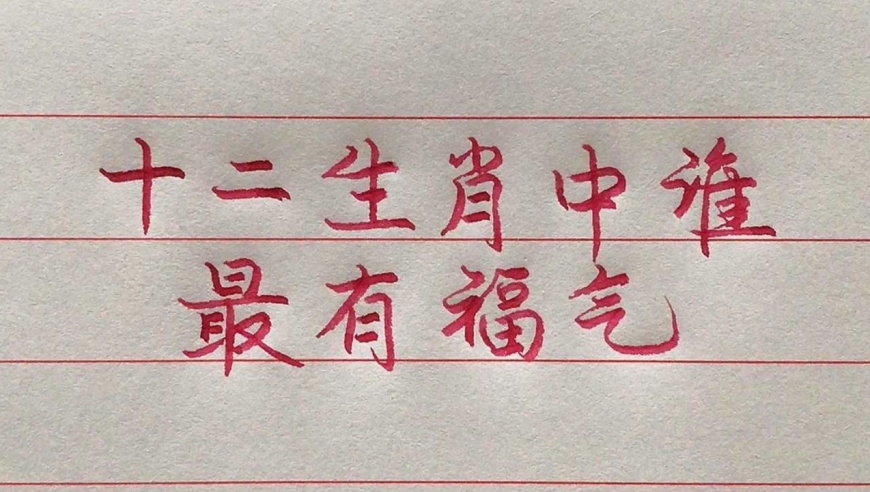 十二生肖中谁
最有福气